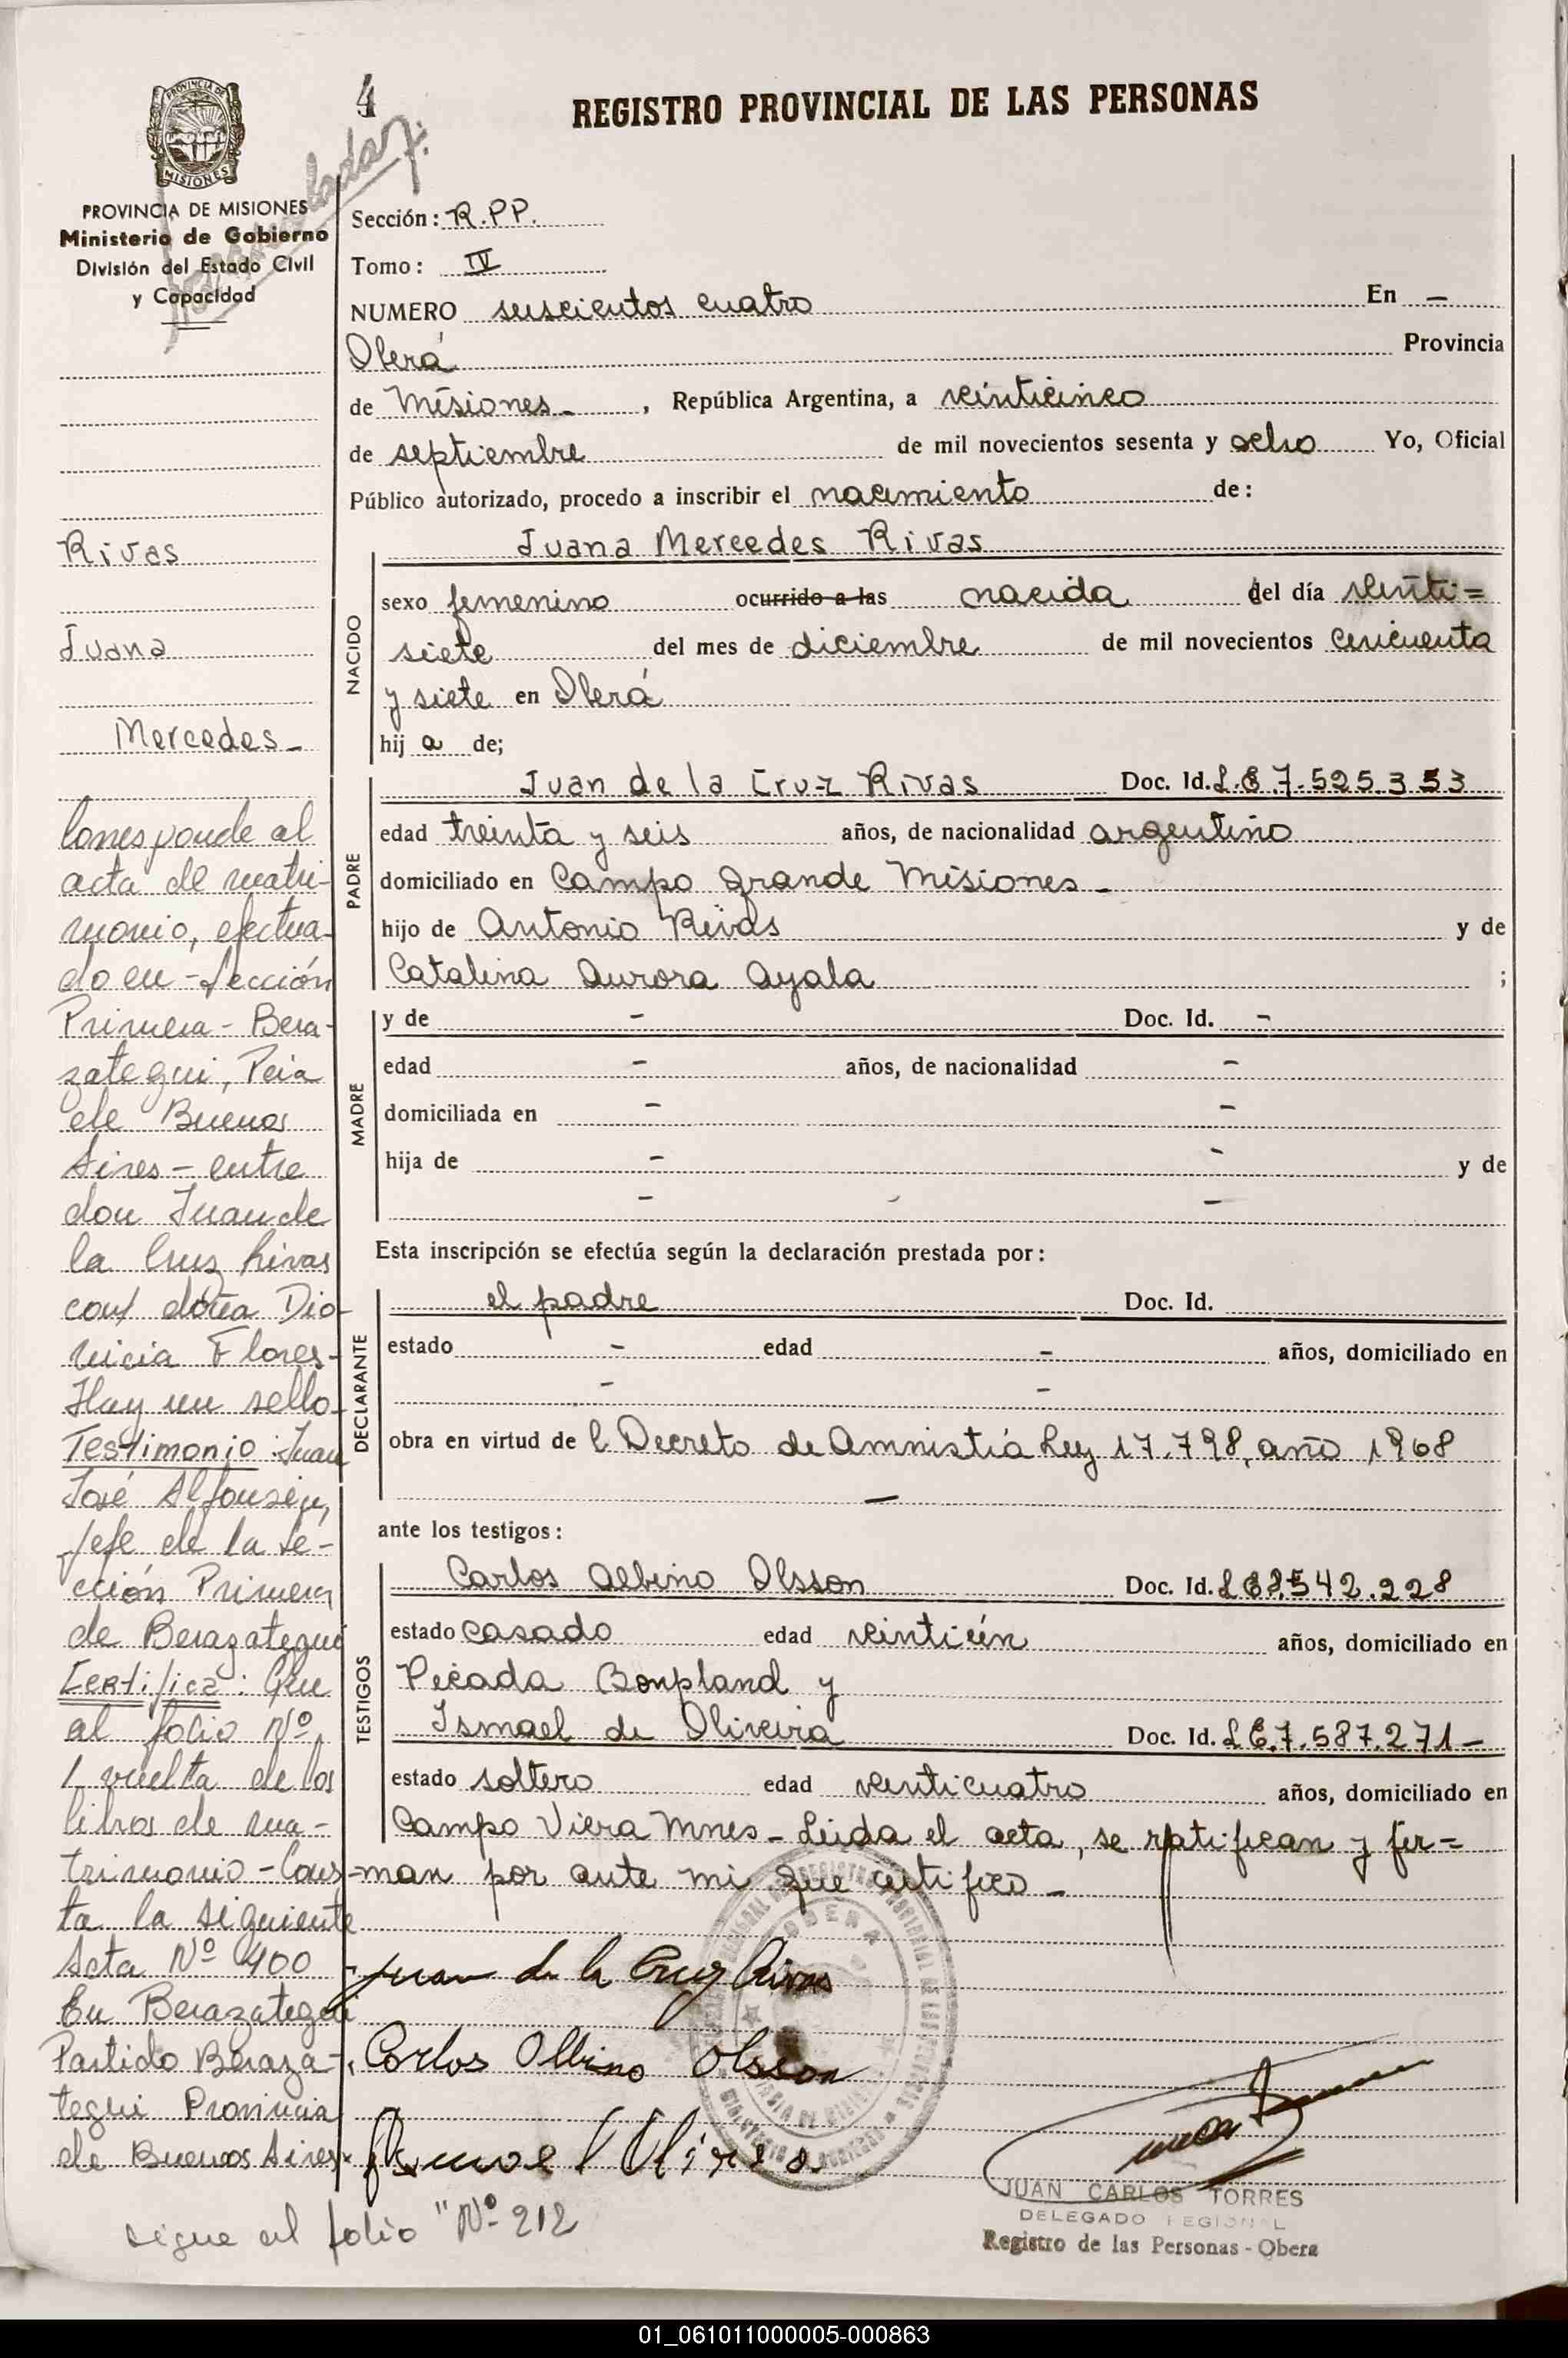 4
REGISTRO PROVINCIAL DE LAS PERSONAS
PROVINCIA DE MISIONES
PROVINCIA DE MISIONES
Ministerio de Gobierno
División del Estado Civil
y Capacidad
Sección: R.PP.
Tomo: IV
NUMERO seiscientos cuatro En –
Oberá Provincia
de Misiones – , República Argentina, a veinticinco
de septiembre de mil novecientos sesenta y ocho Yo, Oficial
Público autorizado, procedo a inscribir el nacimiento de:
Juana Mercedes Rivas
NACIDO
sexo femenino ocurrido a las nacida del día veinti=
siete del mes de diciembre de mil novecientos cincuenta
y siete en Oberá
hij a de;
PADRE
Juan de la Cruz Rivas Doc. Id. L.E 7.525.353
edad treinta y seis años, de nacionalidad argentino
domiciliado en Campo Grande Misiones –
hijo de Antonio Rivas y de
Catalina Aurora Ayala ;
MADRE
y de – Doc. Id. –
edad – años, de nacionalidad –
domiciliada en – –
hija de – – y de
– –
Esta inscripción se efectúa según la declaración prestada por:
DECLARANTE
el padre Doc. Id.
estado – edad – años, domiciliado en
– –
obra en virtud de l Decreto de Amnistía Ley 17.798, año 1968
–
ante los testigos:
TESTIGOS
Carlos Albino Olsson Doc. Id. L.E 8.542.228
estado casado edad años, domiciliado en
Picada Bonpland y
Ismael de Oliveira Doc. Id. L.E.7.587.271 –
estado soltero edad venticuatro años, domiciliado en
Campo Viera Mnes – Leida el acta, se ratifican y fir=
man por ante mi que certifico –
Juan de la Cruz Rivas
Carlos Albino Olsson
JUAN CARLOS TORRES
DELEGADO REGIONAL
Registro de las Personas - Obera
Rivas
Juana
Mercedes –
Corresponde al
acta de matri-
monio, efectua-
do en - Sección
Primera - Bera-
zategui, Pcia
de Buenos
Aires - entre
don Juan de
la Cruz Rivas
con doña Dio-
nicia Flores -
Hay un sello -
Testimonio: Juan
José Alfonsín,
Jefe de la Se-
cción Primera
de Berazategui
Certifica: Que
al folio Nº
1 vuelta de los
libros de ma-
trimonio - Cons-
ta la siguiente
Acta Nº 400
En Berazategui
Partido Beraza-
tegui Provincia
de Buenos Aires
sigue al folio "Nº 212
01_061011000005-000863